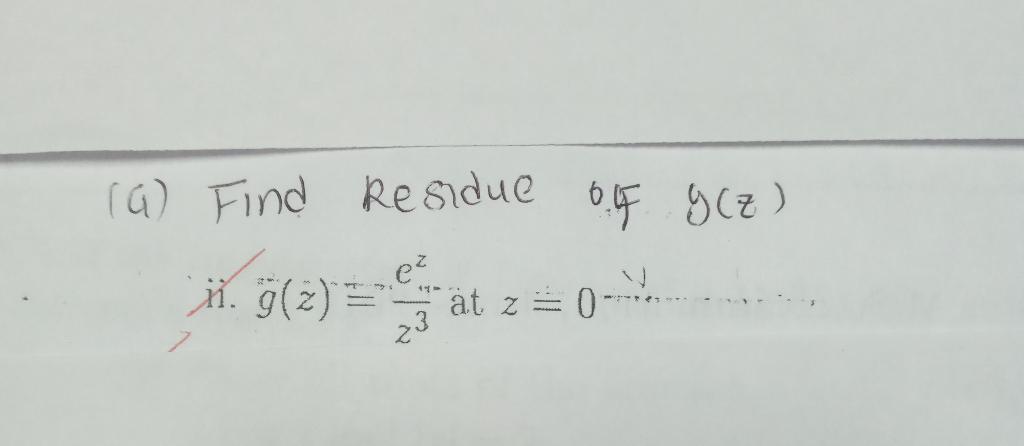 (a) Find Residue of g(z)
ii. g(z) = e^z / z^3 at z = 0